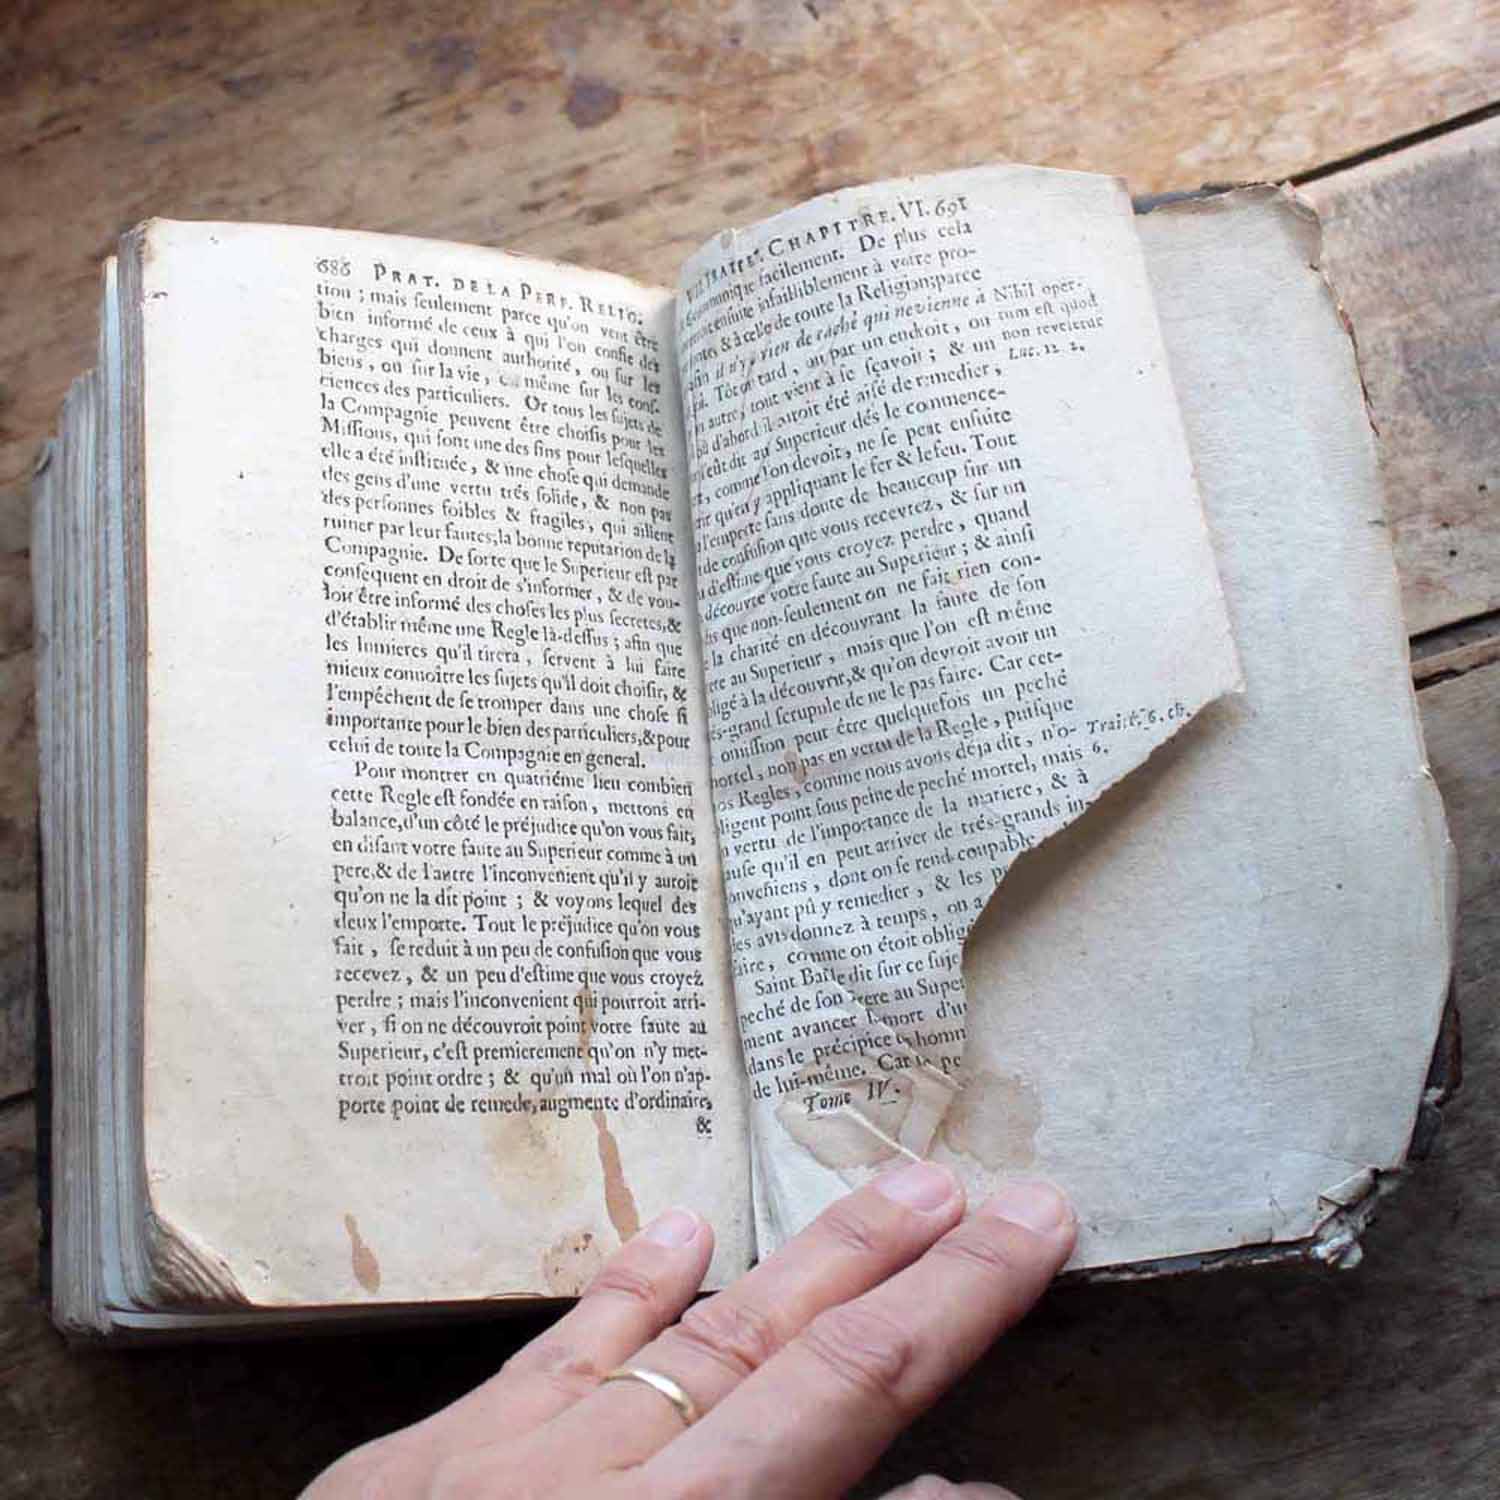 686 PRAT. DE LA PERF. RELIG.
tion ; mais ſeulement parce qu'on veut être
bien informé de ceux à qui l'on confie des
charges qui donnent authorité, ou ſur les
biens, ou ſur la vie, même ſur les conſ-
ciences des particuliers. Or tous les ſujets de
la Compagnie peuvent être choiſis pour les
Miſſions, qui ſont une des fins pour leſquelles
elle a été inſtituée, & une choſe qui demande
des gens d'une vertu trés ſolide, & non pas
des perſonnes foibles & fragiles, qui aillent
ruiner par leur fautes, la bonne reputation de la
Compagnie. De ſorte que le Superieur eſt par
conſequent en droit de s'informer, & de vou-
loir être informé des choſes les plus ſecretes, &
d'établir même une Regle là-deſſus ; afin que
les lumieres qu'il tirera, ſervent à lui faire
mieux connoître les ſujets qu'il doit choiſir, &
l'empêchent de ſe tromper dans une choſe ſi
importante pour le bien des particuliers, & pour
celui de toute la Compagnie en general.
Pour montrer en quatriéme lieu combien
cette Regle eſt fondée en raiſon, mettons en
balance, d'un côté le préjudice qu'on vous fait,
en diſant votre faute au Superieur comme à un
pere, & de l'autre l'inconvenient qu'il y auroit
qu'on ne la dît point ; & voyons lequel des
deux l'emporte. Tout le préjudice qu'on vous
fait, ſe reduit à un peu de confuſion que vous
recevez, & un peu d'eſtime que vous croyez
perdre ; mais l'inconvenient qui pourroit arri-
ver, ſi on ne découvroit point votre faute au
Superieur, c'eſt premierement qu'on n'y met-
troit point ordre ; & qu'un mal où l'on n'ap-
porte point de remede, augmente d'ordinaire,
&
TRAITE. CHAPITRE. VI. 691
facilement. De plus cela
enſuite infailliblement à votre pro-
& à celle de toute la Religion; parce
il n'y a rien de caché qui ne vienne à
Tôt ou tard, ou par un endroit, ou
autre, tout vient à ſe ſçavoir ; & un
d'abord il auroit été aiſé de remedier,
eût dit au Superieur dés le commence-
comme l'on devoit, ne ſe peut enſuite
qu'en y appliquant le fer & le feu. Tout
l'emporte ſans doute de beaucoup ſur un
de confuſion que vous recevrez, & ſur un
d'eſtime que vous croyez perdre, quand
découvre votre faute au Superieur ; & ainſi
que non-ſeulement on ne fait rien con-
la charité en découvrant la faute de ſon
au Superieur, mais que l'on eſt même
à la découvrir, & qu'on devroit avoir un
grand ſcrupule de ne le pas faire. Car cet-
omiſſion peut être quelquefois un peché
mortel, non pas en vertu de la Regle, puiſque
Regles, comme nous avons déja dit, n'o-
ligent point ſous peine de peché mortel, mais
vertu de l'importance de la matiere, & à
qu'il en peut arriver de trés-grands in-
dont on ſe rend coupable
qu'ayant pû y remedier, & les
avis donnez à temps, on a
comme on étoit
Saint Baſile dit ſur ce
peché de ſon frere au
ment avancer la mort
dans le précipice
de lui-même. Car
Tome IV.
Nihil oper-
tum eſt quod
non reveletur
Luc. 12. 2.
Traité. 6. ch.
6.